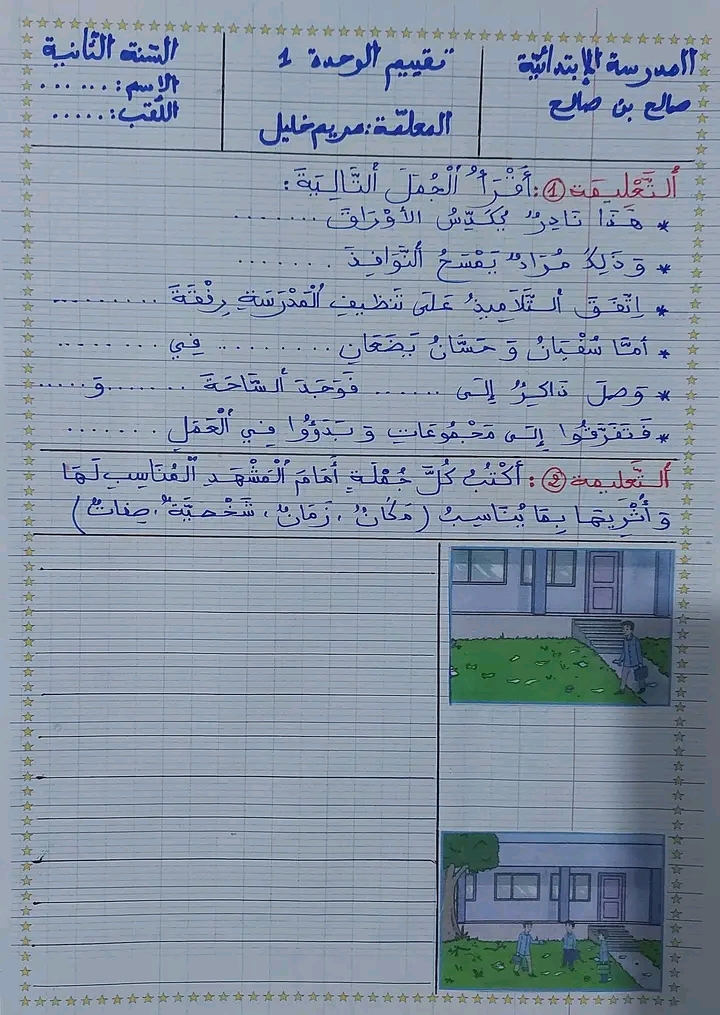 المدرسة الإبتدائية
صالح بن صالح
تقييم الوحدة 1
المعلمة: مريم خليل
السنة الثانية
الاسم: ......
اللقب: .....
اَلتَّعْلِيمَة ①: أَقْرَأُ الْجُمَلَ التَّالِيَةَ:
* هَذَا نَادِرٌ يُكَدِّسُ الأَوْرَاقَ ........
* وَ ذَلِكَ مُرَادٌ يَمْسَحُ النَّوَافِذَ ........
* اِتَّفَقَ التَّلَامِيذُ عَلَى تَنْظِيفِ الْمَدْرَسَةِ رِفْقَةَ ..........
* أَمَّا سُفْيَانُ وَ حَسَّانُ يَضَعَانِ .......... فِي ........
* وَصَلَ ذَاكِرُ إِلَى ....... فَوَجَدَ السَّاحَةَ ........وَ.......
* فَتَفَرَّقُوا إِلَى مَجْمُوعَاتٍ وَ بَدَؤُوا فِي الْعَمَلِ ........
اَلتَّعْلِيمَة ②: أَكْتُبُ كُلَّ جُمْلَةٍ أَمَامَ الْمَشْهَدِ الْمُنَاسِبِ لَهَا
وَ أُثْرِيهَا بِمَا يُنَاسِبُ (مَكَانٌ، زَمَانٌ، شَخْصِيَّةٌ، صِفَاتٌ)